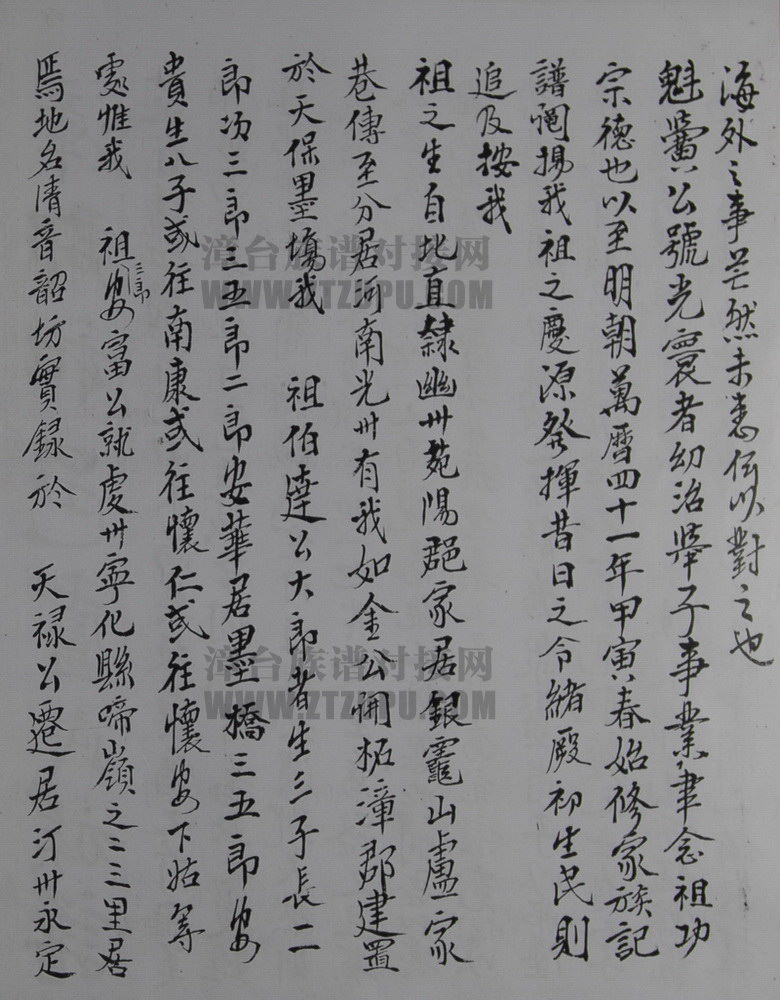 海外之事茫然未悉何以對之也
魁黌公號光寰者幼治舉子事業聿念祖功
宗德也以至明朝萬曆四十一年甲寅春始修家族記
譜闡揚我祖之慶源發揮昔日之令緒厥初生民則
追及按我
祖之生自北直隸幽州苑陽郡家居銀靇山盧家
巷傳至分居河南光州有我如金公開柘漳郡建置
於天保墨塲我 祖伯達公大郎者生三子長二
郎次三郎三五郎二郎安華居墨橋三五郎安
貴生八子或往南康或往懷仁或往懷安下姑等
處惟我 祖三郎安富公就虔州寧化縣啼嶺之二三里居
焉地名清音韶坊實録於 天禄公遷居汀州永定
漳台族谱对接网
WWW.ZTZUPU.COM
漳台族谱对接网
WWW.ZTZUPU.COM